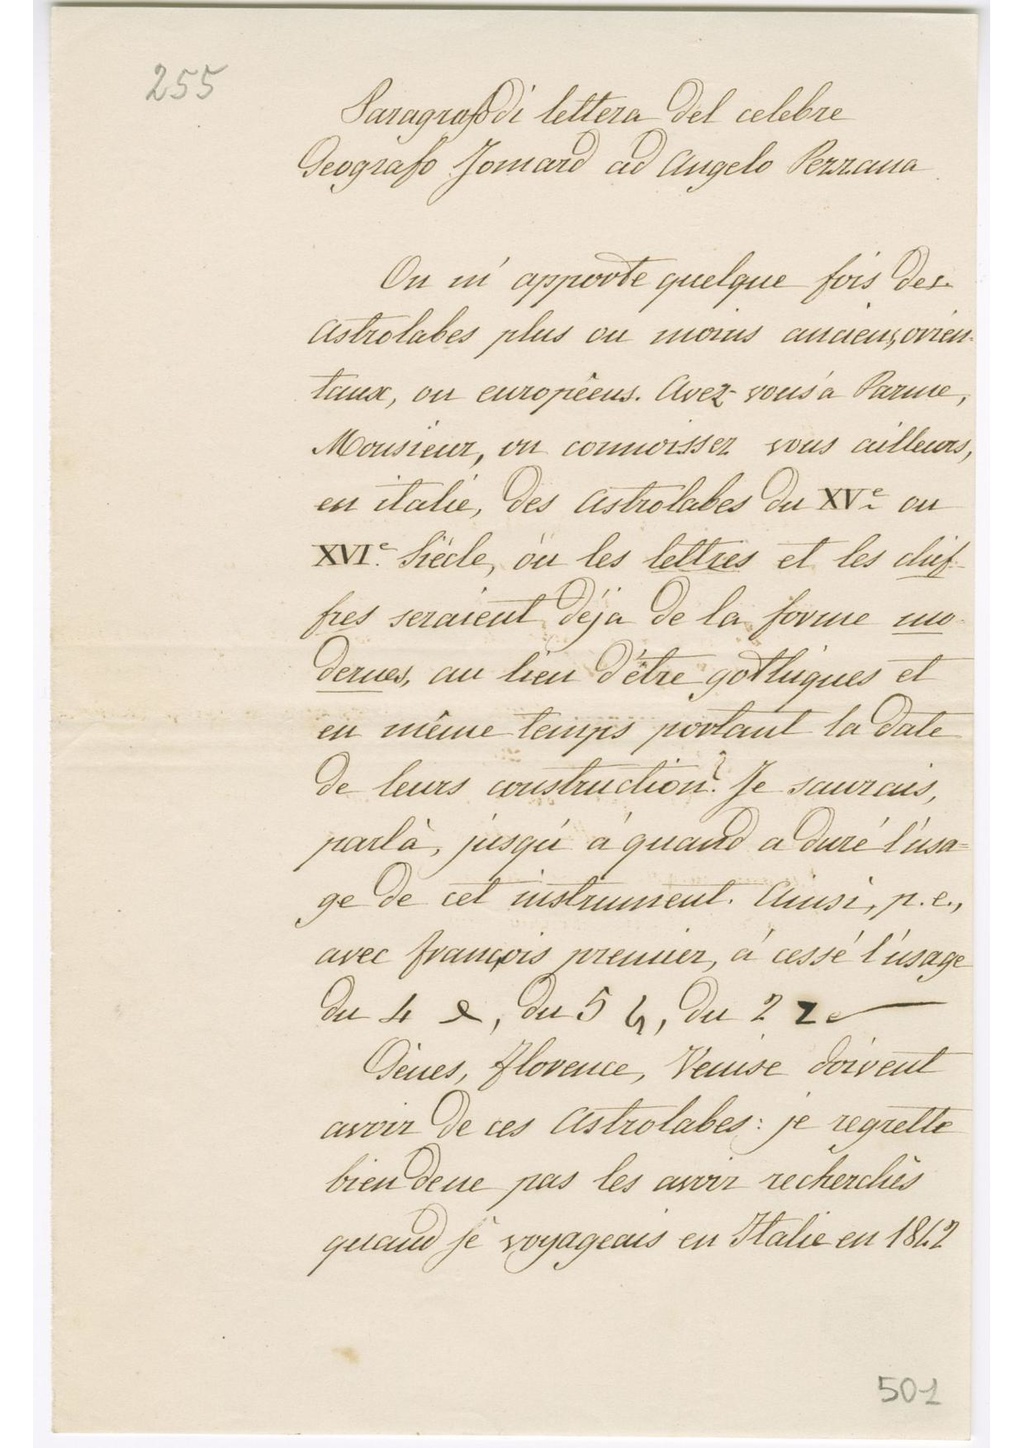 255
Paragrafo di lettera del celebre
Geografo Jomard ad Angelo Pezzana
On m'apporte quelque fois des
astrolabes plus ou moins anciens, orien-
taux, ou européens. Avez-vous à Parme,
Monsieur, ou connoissez vous ailleurs,
en italie, des astrolabes du XVe ou
XVIe. Siècle, òu les lettres et les chif-
fres seraient déja de la forme mo-
dernes, au lieu d'être gothiques et
en même temps portant la date
de leurs construction? Je saurais,
parlà, jusqu'à quand a duré l'usa=
ge de cet instrument. Ainsi, p.e.,
avec françois premier, à cessé l'usage
du 4, du 5, du 2
Gènes, florence, Venise doivent
avoir de ces astrolabes: je regrette
bien de ne pas les avoir recherchés
quand je voyageais en Italie en 1842
501